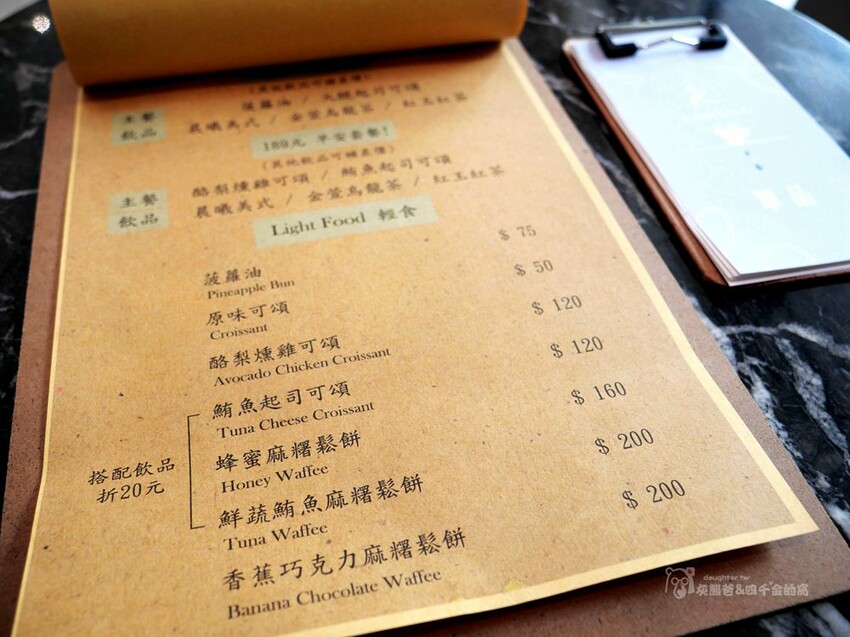 (其他飲品可補差價)
菠蘿油 / 火腿起司可頌
主餐
飲品
晨曦美式 / 金萱烏龍茶 / 紅玉紅茶
189元 早安套餐!
(其他飲品可補差價)
主餐
飲品
酪梨燻雞可頌 / 鮪魚起司可頌
晨曦美式 / 金萱烏龍茶 / 紅玉紅茶
Light Food 輕食
菠蘿油 $ 75
Pineapple Bun
原味可頌 $ 50
Croissant
酪梨燻雞可頌 $ 120
Avocado Chicken Croissant
鮪魚起司可頌 $ 120
Tuna Cheese Croissant
搭配飲品
折20元
蜂蜜麻糬鬆餅 $ 160
Honey Waffee
鮮蔬鮪魚麻糬鬆餅 $ 200
Tuna Waffee
香蕉巧克力麻糬鬆餅 $ 200
Banana Chocolate Waffee
daughter.tw
灰熊爸&四千金的窩